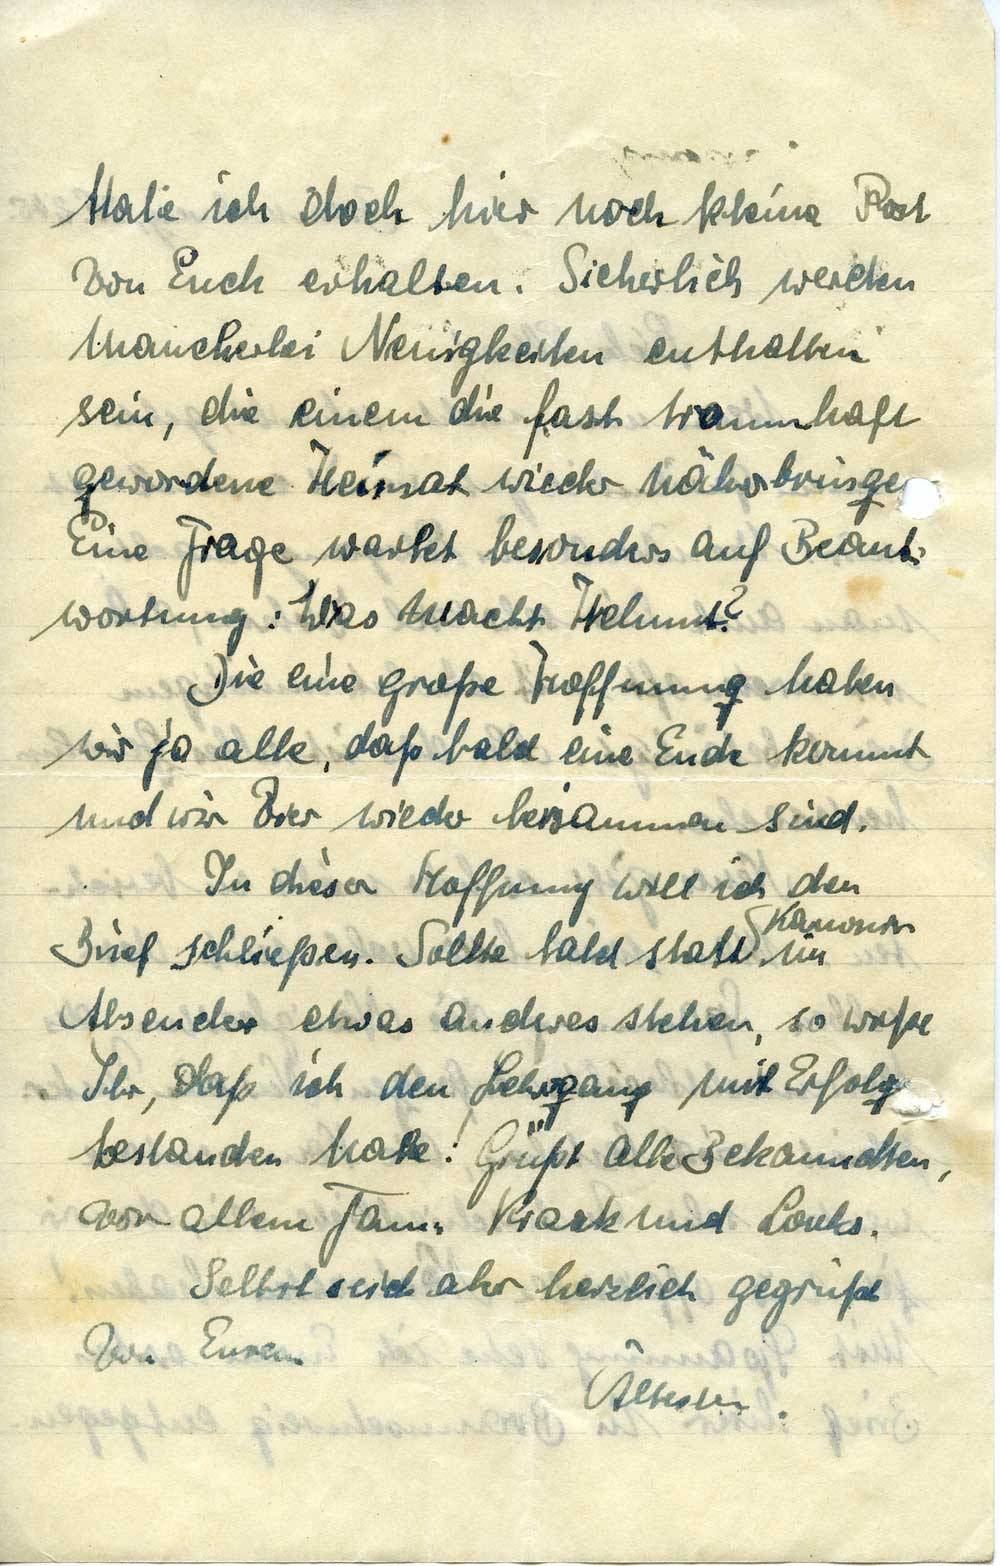 Habe ich doch hier noch keine Post
von Euch erhalten. Sicherlich werden
mancherlei Neuigkeiten enthalten
sein, die einem die fast traumhaft
gewordene Heimat wieder näherbringe
Eine Frage wartet besonders auf Beant-
wortung: Was macht Helmut?
Die eine große Hoffnung haben
wir ja alle, daß bald eine Ende kommt
und wir Vier wieder beisammen sind.
In dieser Hoffnung will ich den
Brief schließen. Sollte bald statt Kanonier im
Absender etwas anderes stehen, so wißt
Ihr, daß ich den Lehrgang mit Erfolg
bestanden habe! Grüßt alle Bekannten,
vor allem Fam. und
Selbst seid aber herzlich gegrüßt
von Eurem
Ältesten.